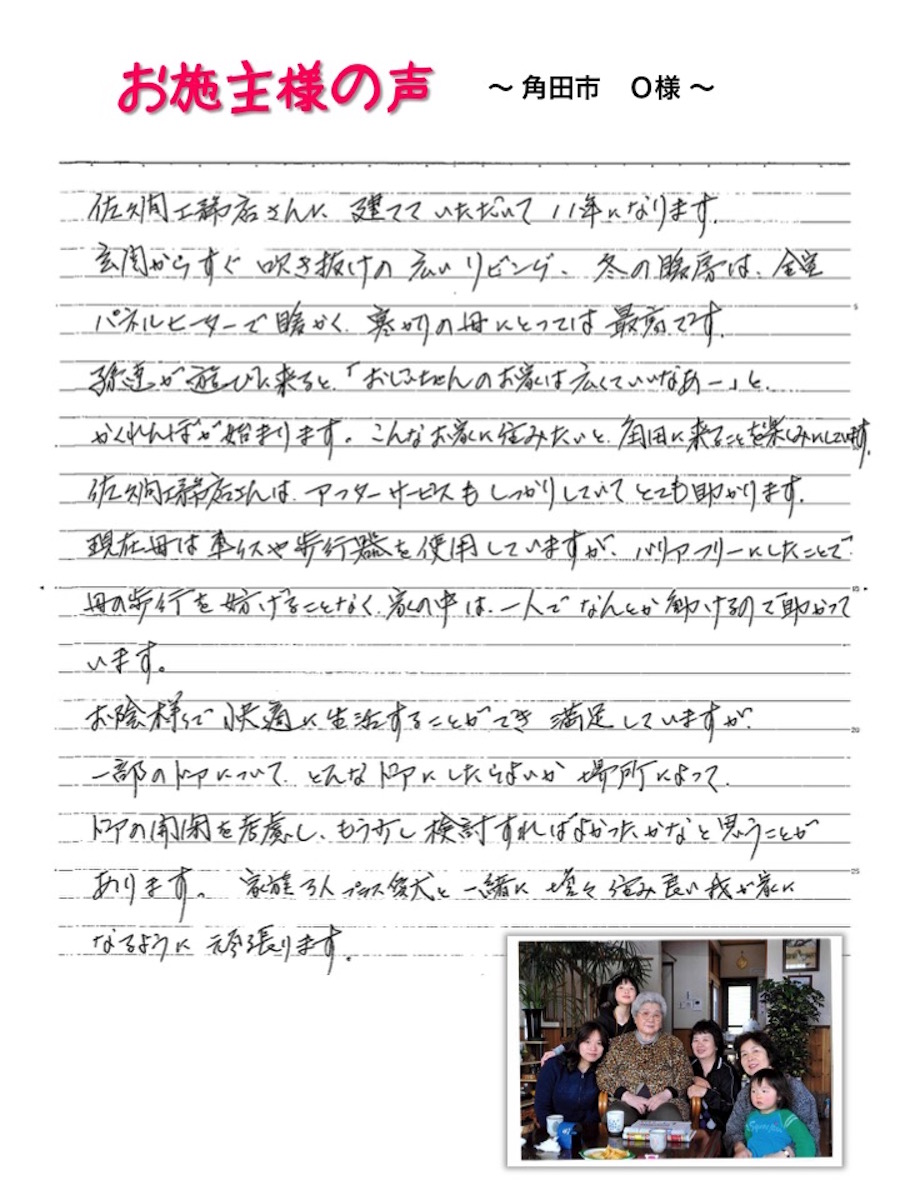 お施主様の声 ～ 角田市 O様 ～
佐久間工務店さんに、建てていただいて11年になります。
玄関からすぐ吹き抜けの広いリビング、冬の暖房は、全室
パネルヒーターで暖かく、寒がりの母にとっては最高です。
孫達が遊びに来ると、「おじいちゃんのお家は広くていいなあー」と、
かくれんぼが始まります。こんなお家に住みたいと、角田に来ることを楽しみにしています。
佐久間工務店さんは、アフターサービスもしっかりしていてとても助かります。
現在母は車イスや歩行器を使用していますが、バリアフリーにしたことで
母の歩行を妨げることなく、家の中は、一人でなんとか動けるので助かって
います。
お陰様で快適に生活することができ満足していますが、
一部のドアについて、どんなドアにしたらよいか場所によって、
ドアの開閉を考慮し、もう少し検討すればよかったかなと思うことが
あります。家族3人プラス愛犬と一緒に増々住み良い我が家に
なるように頑張ります。